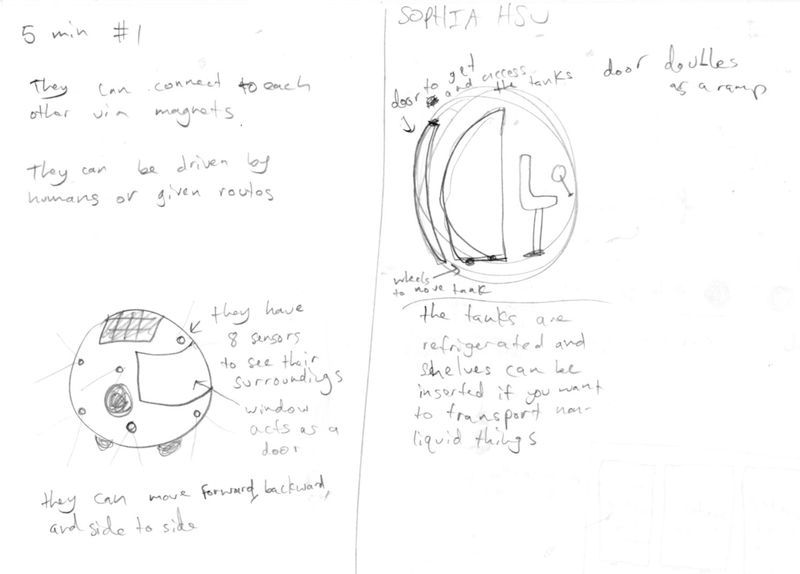 5 min #1
They can connect to each
other via magnets.
They can be driven by
humans or given routes
they have
8 sensors
to see their
surroundings
window
acts as a
door
they can move forward, backward,
and side to side
SOPHIA HSU
door to get
and access
the tanks
door doubles
as a ramp
wheels
to move tank
the tanks are
refrigerated and
shelves can be
inserted if you want
to transport non-
liquid things